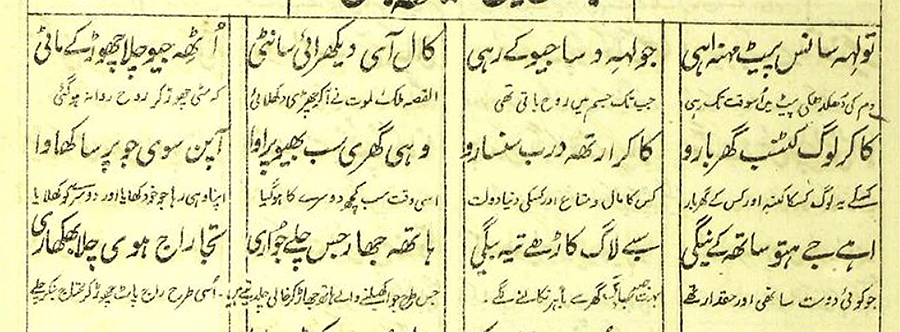 تولہہ سانس پیٹ مہنہ اہی جولہہ دسا جیو کے رہی کال آی دیکھرائی سانٹی اُٹھہ جیو چلا چھوڑ کے ماٹی
دم کی دھکدھکی پیٹ میں اُسوقت تک رہی جب تک جسم میں روح باقی تھی القصہ ملک الموت نے آکر چھڑی دکھلائی کہ مٹی چھوڑ کر روح روانہ ہوگئی
کاکر لوگ کٹنب گھر بارو کاکر ارتھہ درب سنسارو وہی گھری سب بھیو پراوا آپن سوی جو پرسا کھاوا
کسکے یہ لوگ کسکا کنبہ اور کس کے گھر بار کس کا مال و متاع اور کسکی دنیا دولت اسی وقت سب کچھ دوسرے کا ہوگیا اپنا وہی رہا جو خود کھایا اور دوسرے کو کھلایا
اہے جے ہتو ساتھ کے نیگی سبے لاگ کاڑھے تیہ بیگی ہاتھہ جھار جس چلے جواری تجا راج ہوی چلا بھکھاری
جو کوئی دوست ساتھی اور حقدار تھے گھر سے باہر نکالنے لگے جس طرح جوا کھیلنے والے ہاتھ جھاڑ کر خالی چلدیتے ہیں۔ اُسی طرح راج پاٹ چھوڑ کر محتاج بنکر چلے